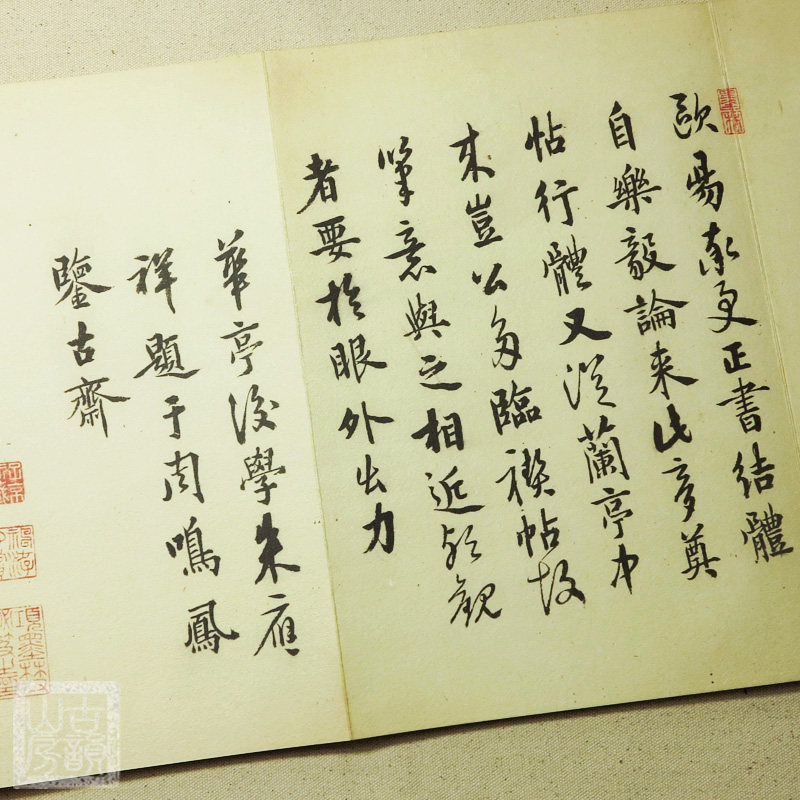 歐陽率更正書結體
自樂毅論來此夢奠
帖行體又從蘭亭中
來豈公多臨禊帖故
筆意與之相近觀
者要於眼外出力
華亭後學朱應
祥題于周鳴鳳
鑒古齋
項墨林
古韻山房